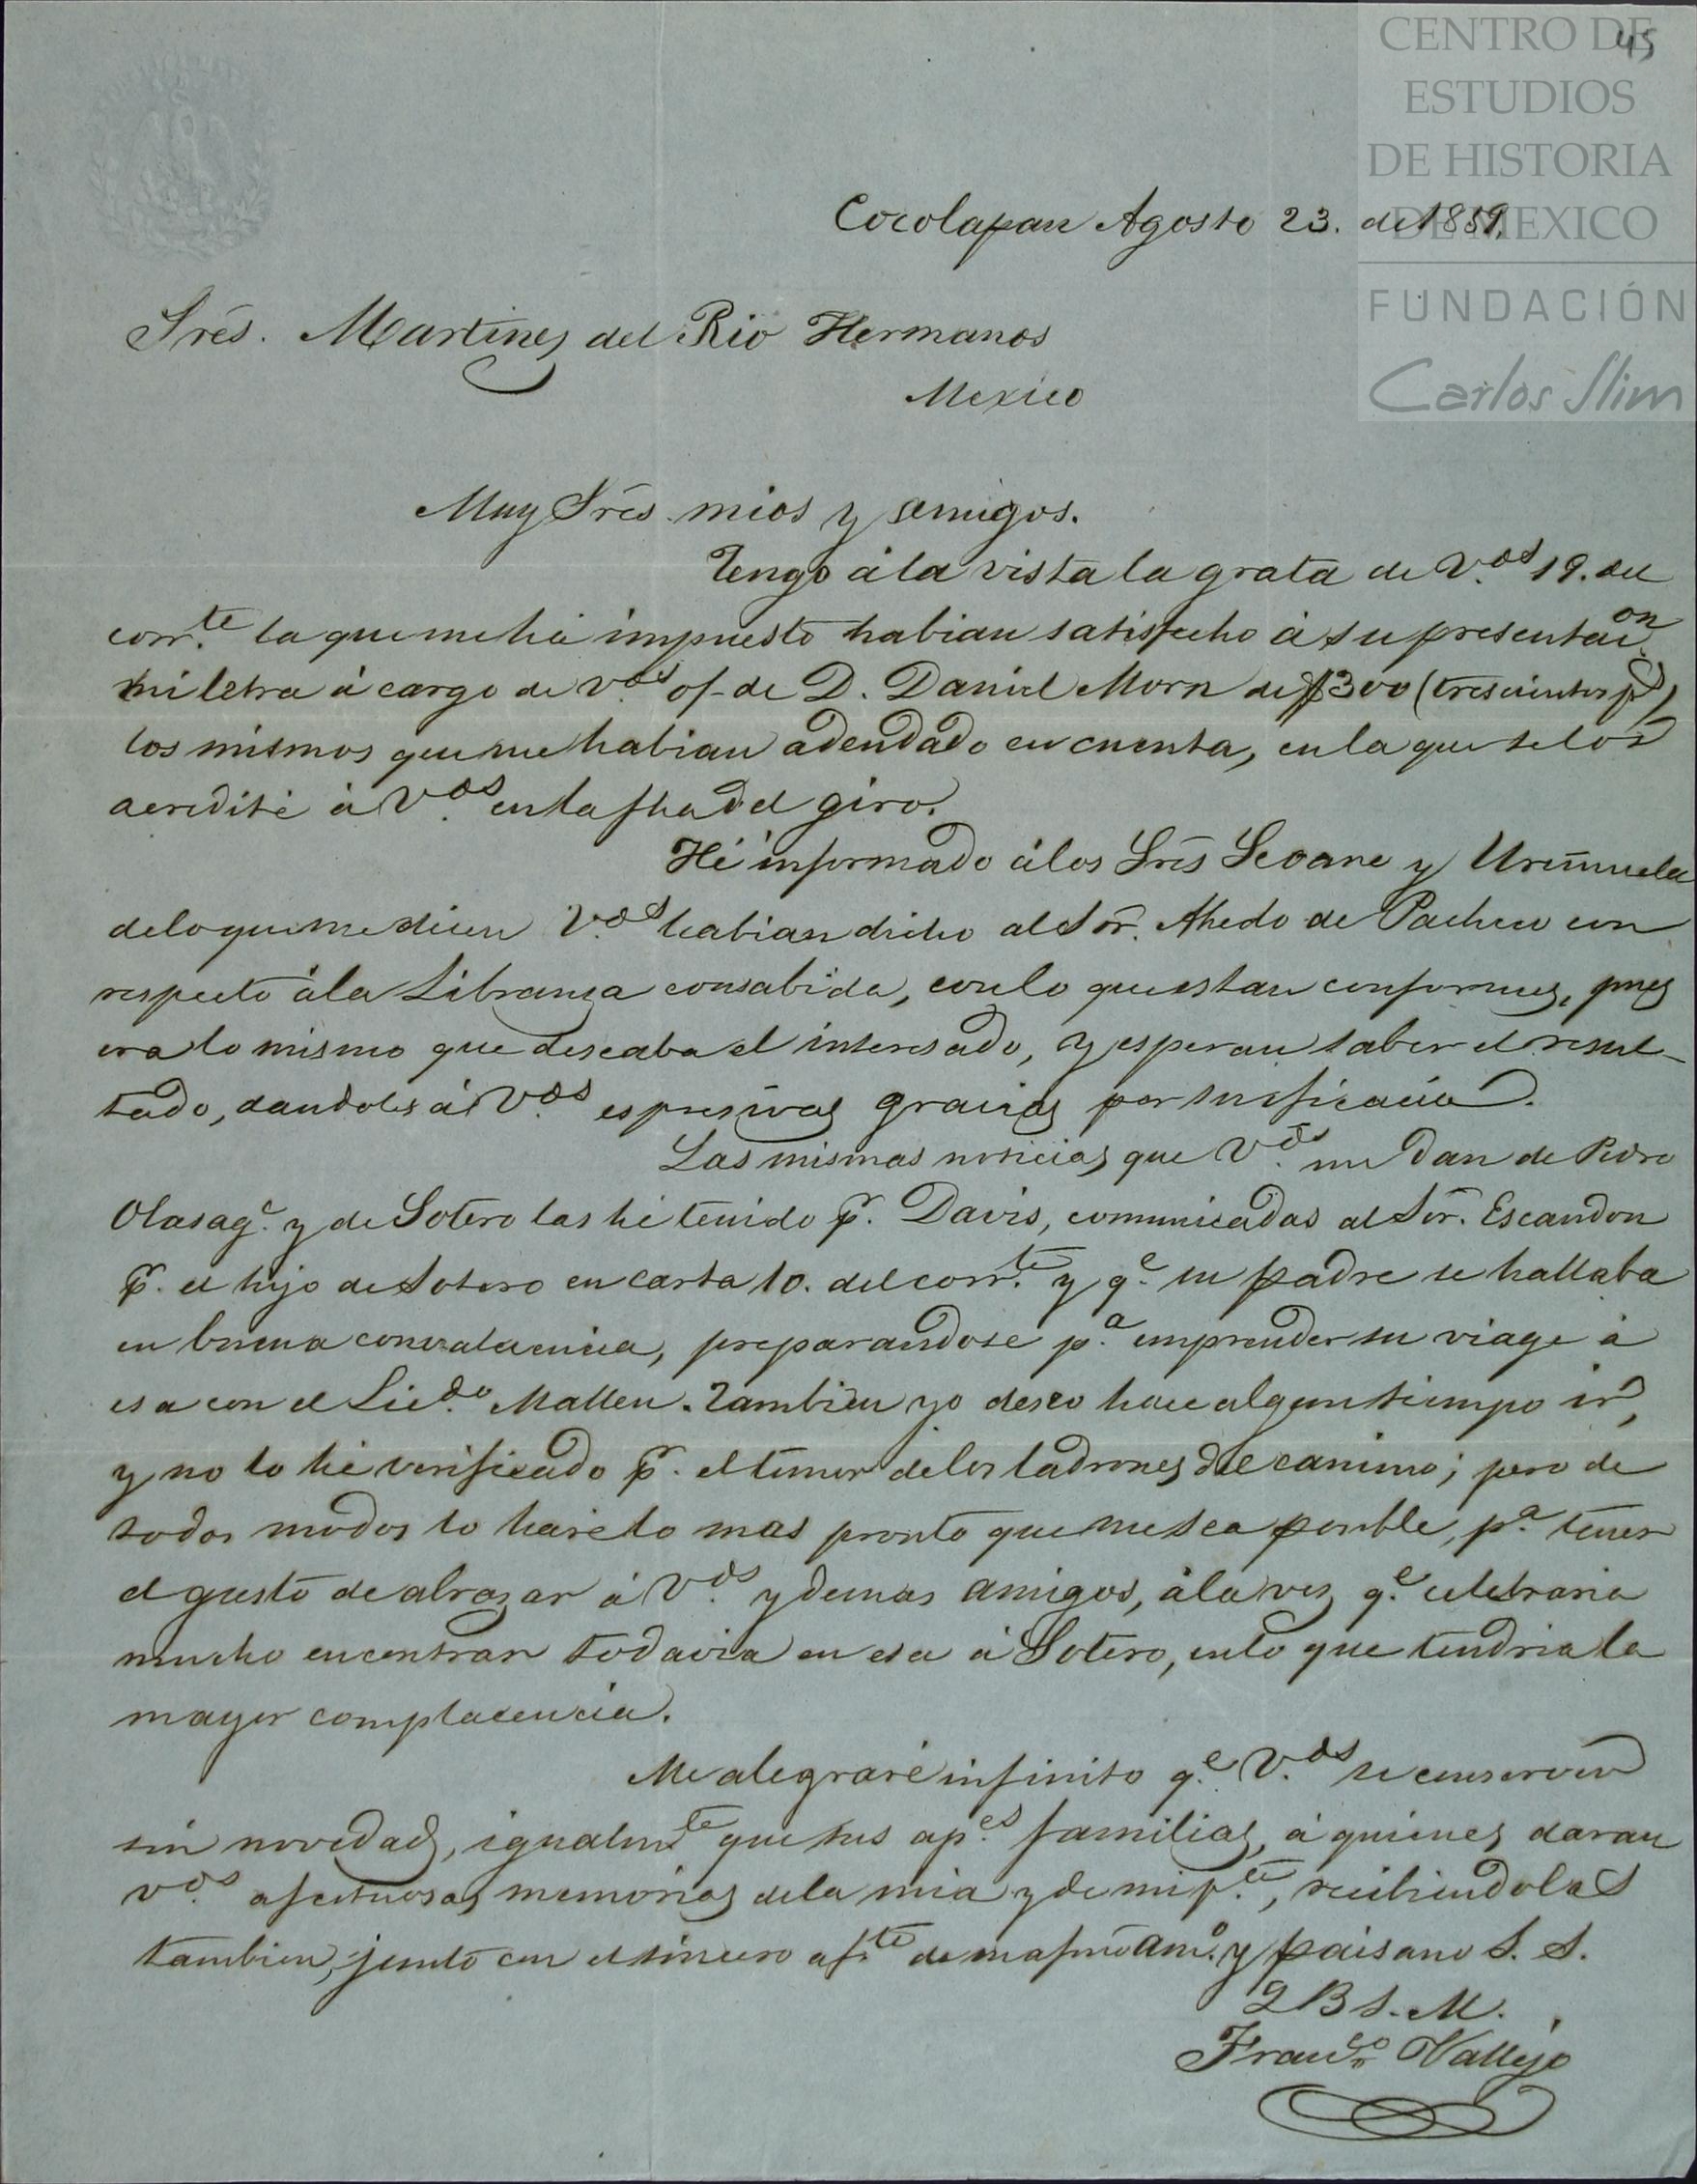 45
CENTRO DE
ESTUDIOS
DE HISTORIA
DE MEXICO
FUNDACIÓN
Carlos Slim
Cocolapan Agosto 23. de 1859.
Srēs. Martinez del Rio Hermanos
Mexico
Muy Srēs. mios y amigos.
Tengo á la vista la grata de V.ds 19. del
corr.te la que me há impuesto habian satisfecho á su presentaon.
mi letra á cargo de V.ds o/ de D. Daniel Morn de $300 (trescientos p.s)
los mismos que me habian adeudado en cuenta, en la que se los
acredité á V.ds en la fha del giro.
Hé informado á los Srēs Seoane y Ureñuela
de lo que me dicen V.ds habian dicho al Sōr. Ahedo de Pacheco con
respecto á la Libranza consabida, con lo que estan conformes, pues
era lo mismo que deseaba el interesado, y esperan saber el resul-
tado, dandoles á V.ds espresivas gracias por su eficacia.
Las mismas noticias que V.ds me dan de Pedro
Olasag.e y de Sotero las hé tenido p.r Davis, comunicadas al Sōr. Escandon
p.r el hijo de Sotero en carta 10. del corr.te y q.e su padre se hallaba
en buena convalecencia, preparandose p.a emprender su viage á
esa con el Licdo. Mallen. Tambien yo deseo hace algun tiempo ir,
y no lo hé verificado p.r el temor de los ladrones del camino; pero de
todos modos lo haré lo mas pronto que me sea posible, p.a tener
el gusto de abrazar á V.ds y demas amigos, á la vez q.e celebraria
mucho encontrar todavia en esa á Sotero, en lo que tendria la
mayor complacencia.
Me alegraré infinito q.e V.ds se conserven
sin novedad, igualmte que sus ap.es familias, á quienes daran
V.ds afectuosas memorias de la mia y de mi p.te, recibiendolas
tambien, junto con el sincero af.to de su afmo am.o y paisano S. S.
Q B S. M.
Franco. Vallejo